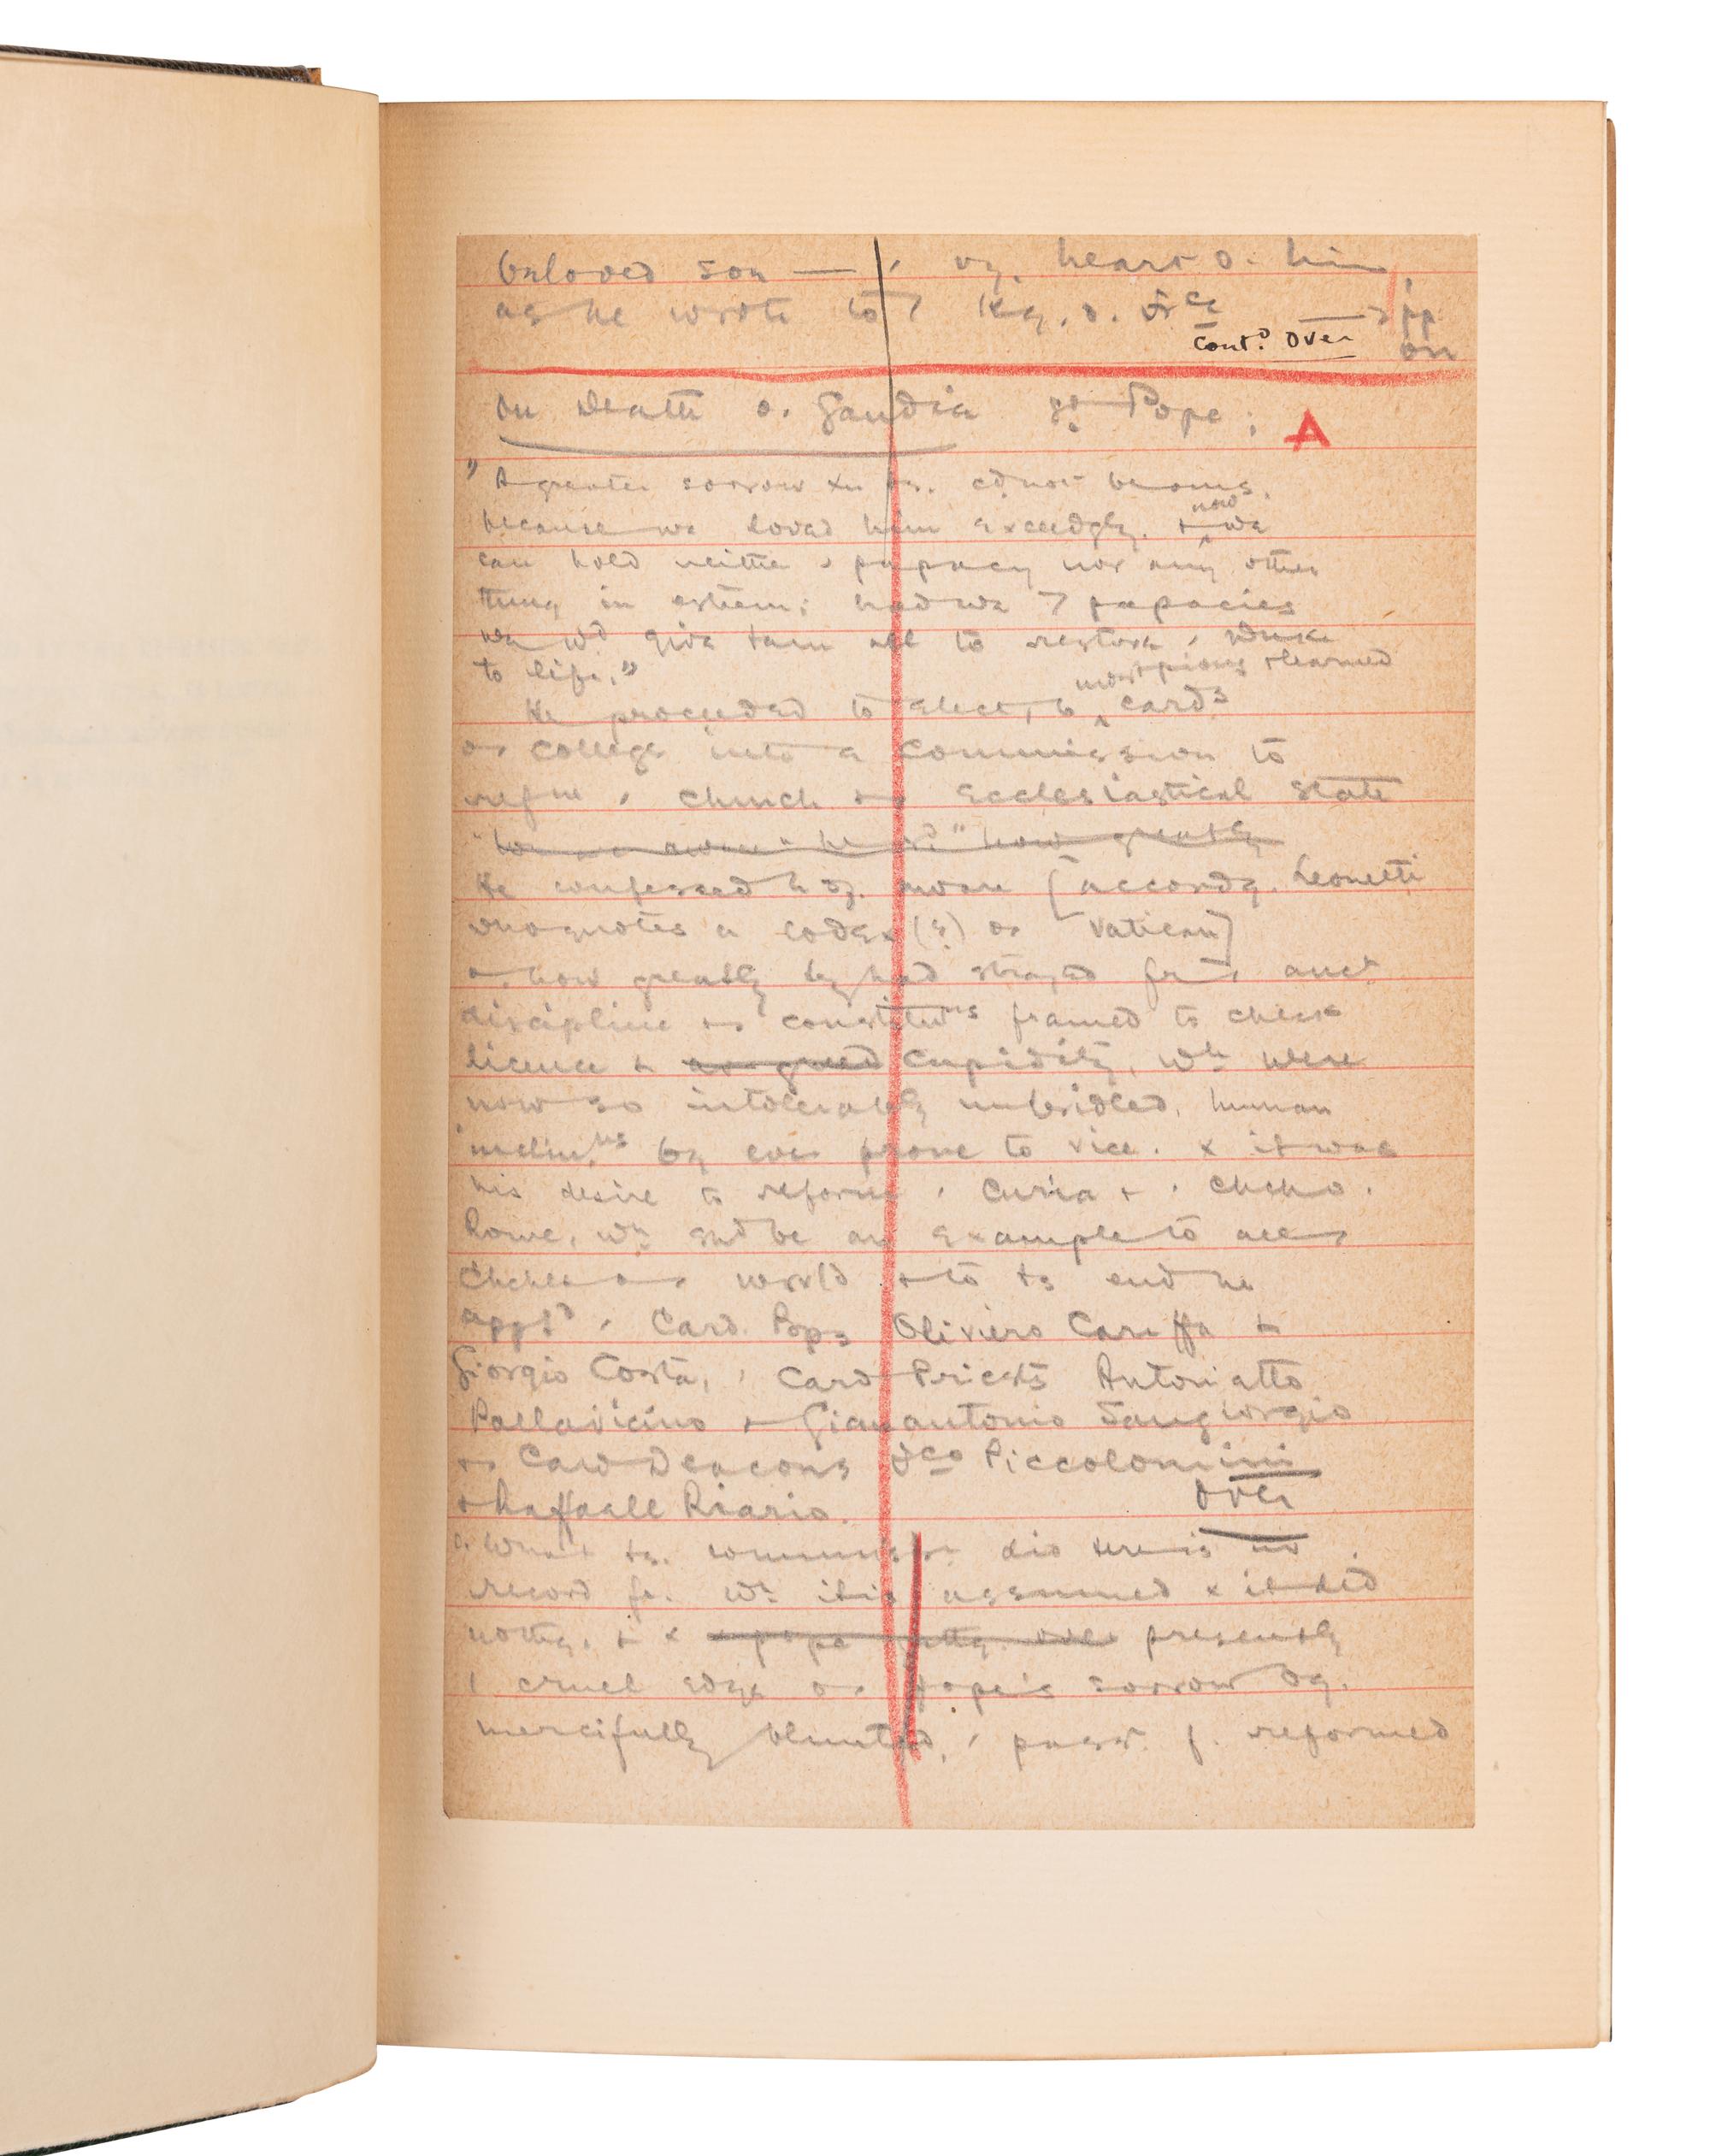 beloved son — ' vy. heart o. him,
as he wrote to ' Kg. o. Fce
pp
on
Contd over
On Death o. Gandia sd. Pope; A
"A greater sorrow xn ts. cd. not be ours,
because we loved him exceedgly. + now we
can hold neither ' papacy nor any other
thing in esteem; had we 7 papacies
we wd give tem all to restore ' Duke
to life."
He proceeded to elect, 6 most pious + learned cards
o' College into a commission to
refm ' church + ' Ecclesiastical state
how greatly
He confessed h aware [accordg. Leonetti
who quotes a codex (?) o' Vatican]
o. how greatly ty had strayed fr ' anct
discipline + ' constitutns framed to check
licence + greed cupidity, wh were
now so intolerably unbridled, human
inclinns bg ever prone to vice. x it was
his desire to reform ' Curia + ' Chch o.
Rome, wh shd be an example to all '
Chches o ' world + to ts end he
apptd ' Card. Bps Oliviero Caraffa +
Giorgio Costa, ' Card Priests Antoniotto
Pallavicino + Gianantonio Sangiorgio
+ ' Card Deacons Fco Piccolomini
+ Raffaele Riario. over
What ts. commissn did there is no
record fr. wh it is assumed x it did
nothg. + x pope presently
' cruel edge o ' Pope's sorrow bg.
mercifully blunted, ' passn. f. reformed